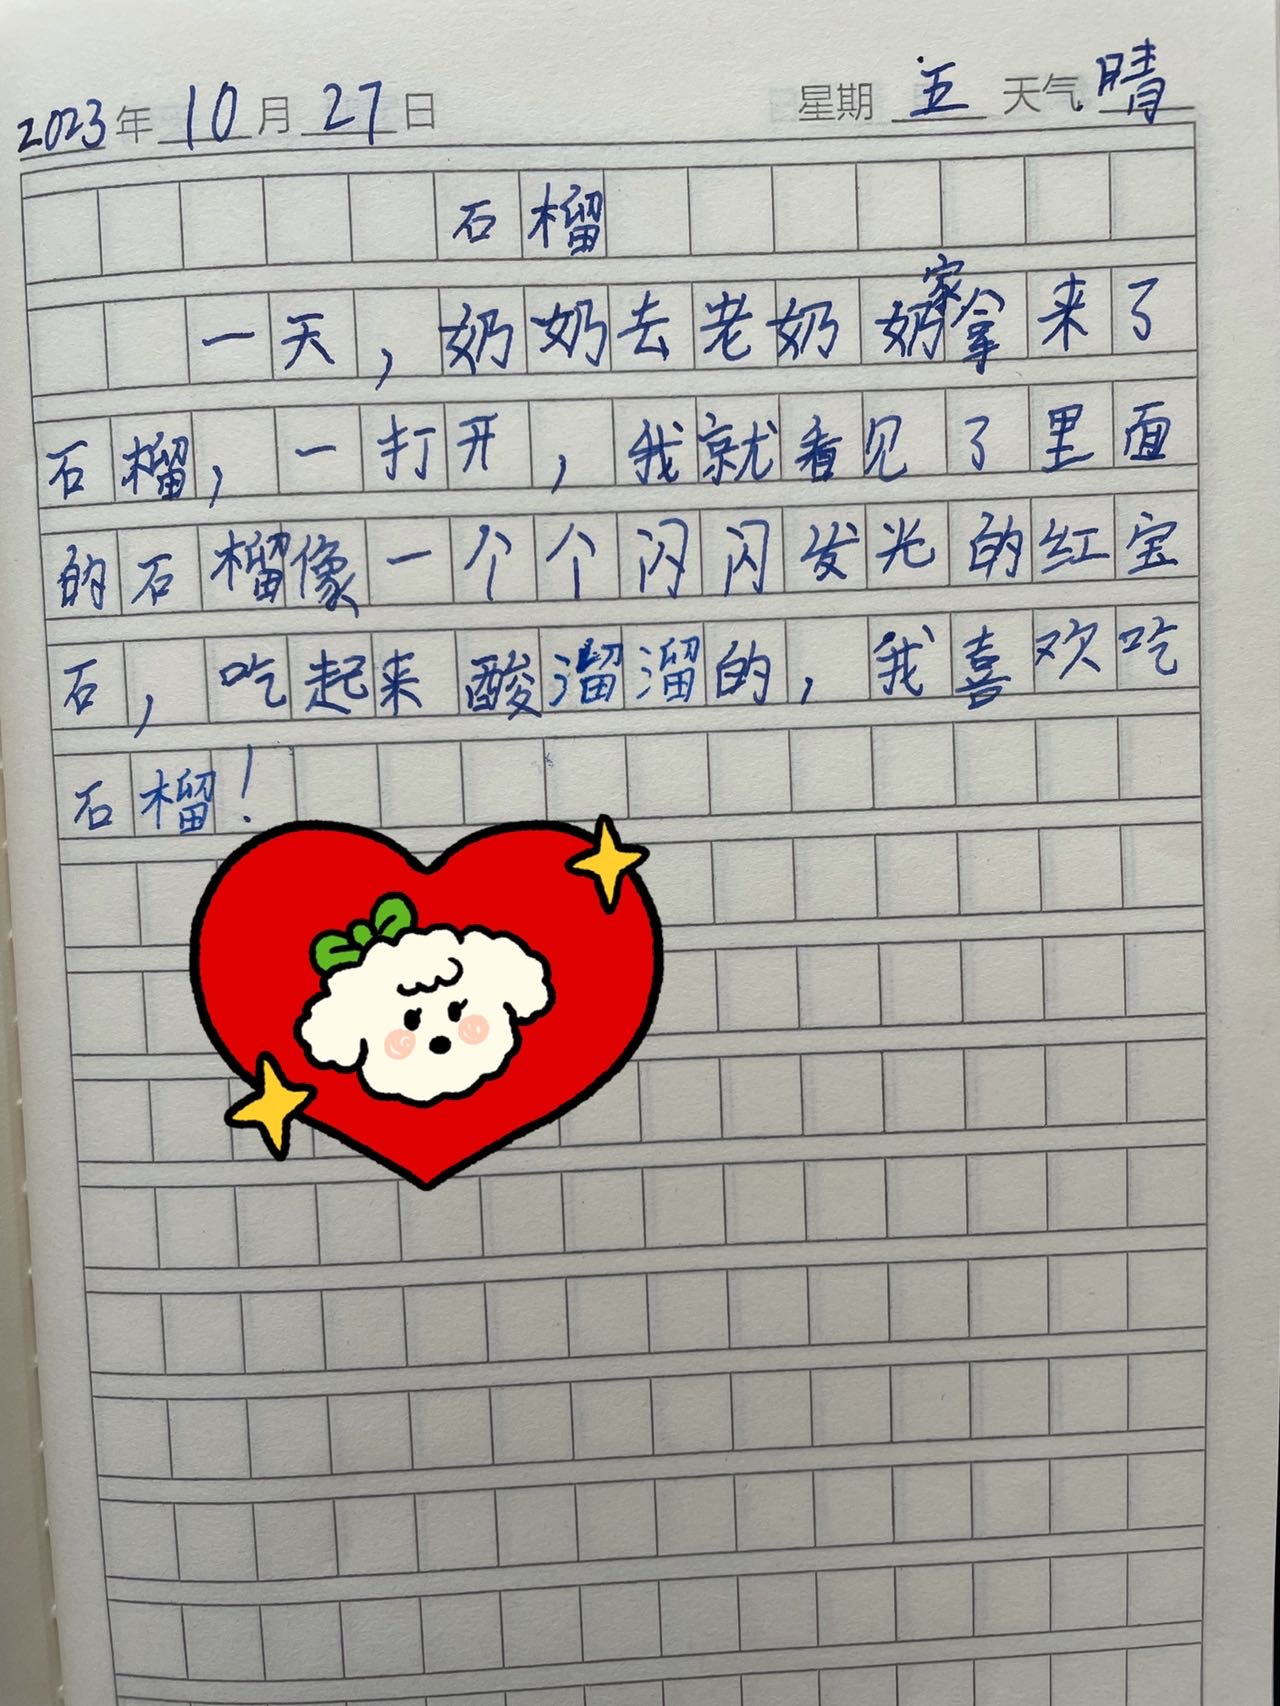 2023年10月27日 星期五 天气晴
石榴
一天，奶奶去老奶奶家拿来了
石榴，一打开，我就看见了里面
的石榴像一个个闪闪发光的红宝
石，吃起来酸溜溜的，我喜欢吃
石榴！